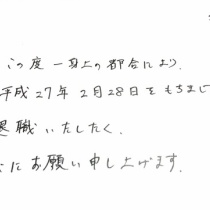 の度 一身上の都合により、
平成27年 2月28日をもちまし
退職いたしたく、
にお願い申し上げます。